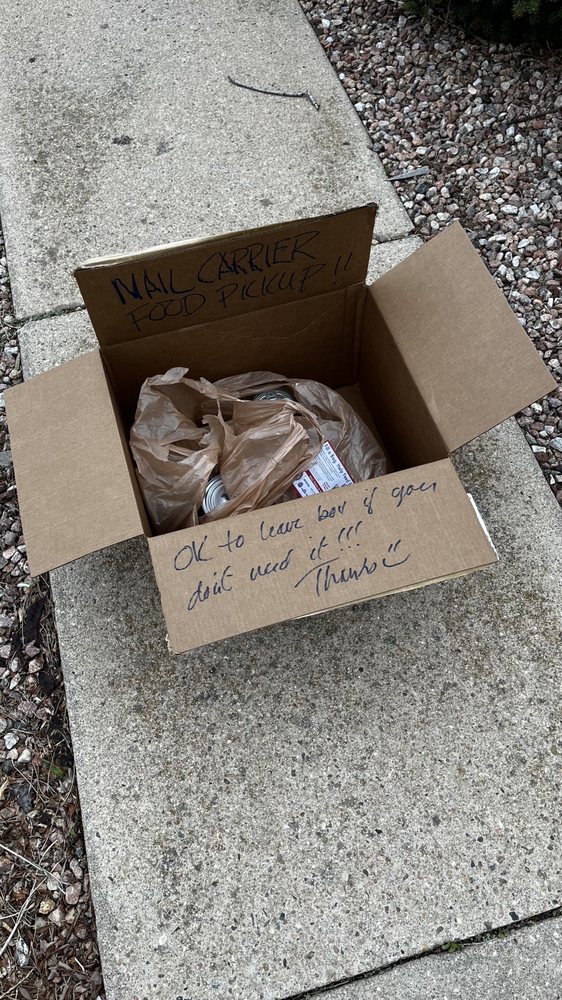 MAIL CARRIER
FOOD PICKUP!!
OK to leave box if you
don't need it!!!
Thanks